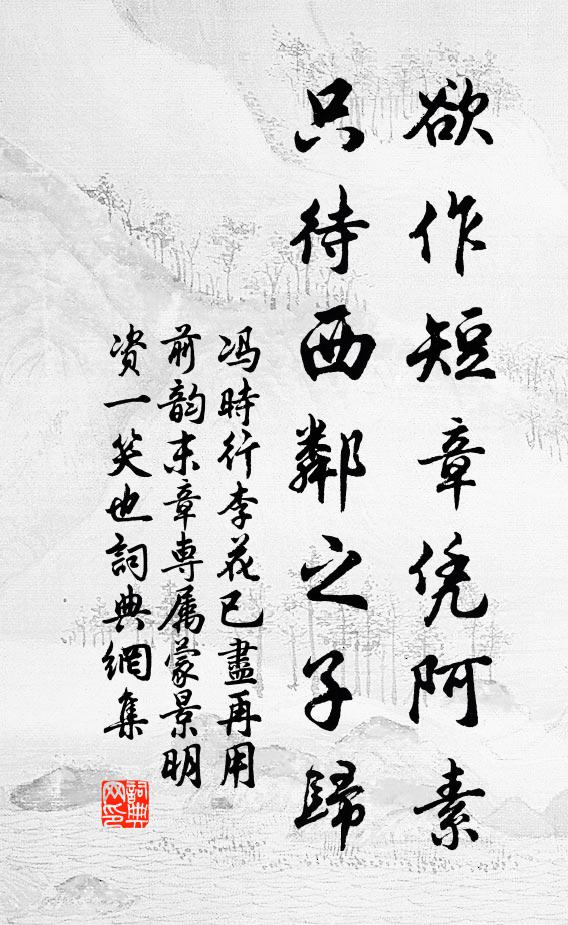 欲作短章凭阿素
只待西鄰之子歸
冯時行李花已盡再用
前韵末章専属蒙景明
资一笑也詞典網集
詞典网印